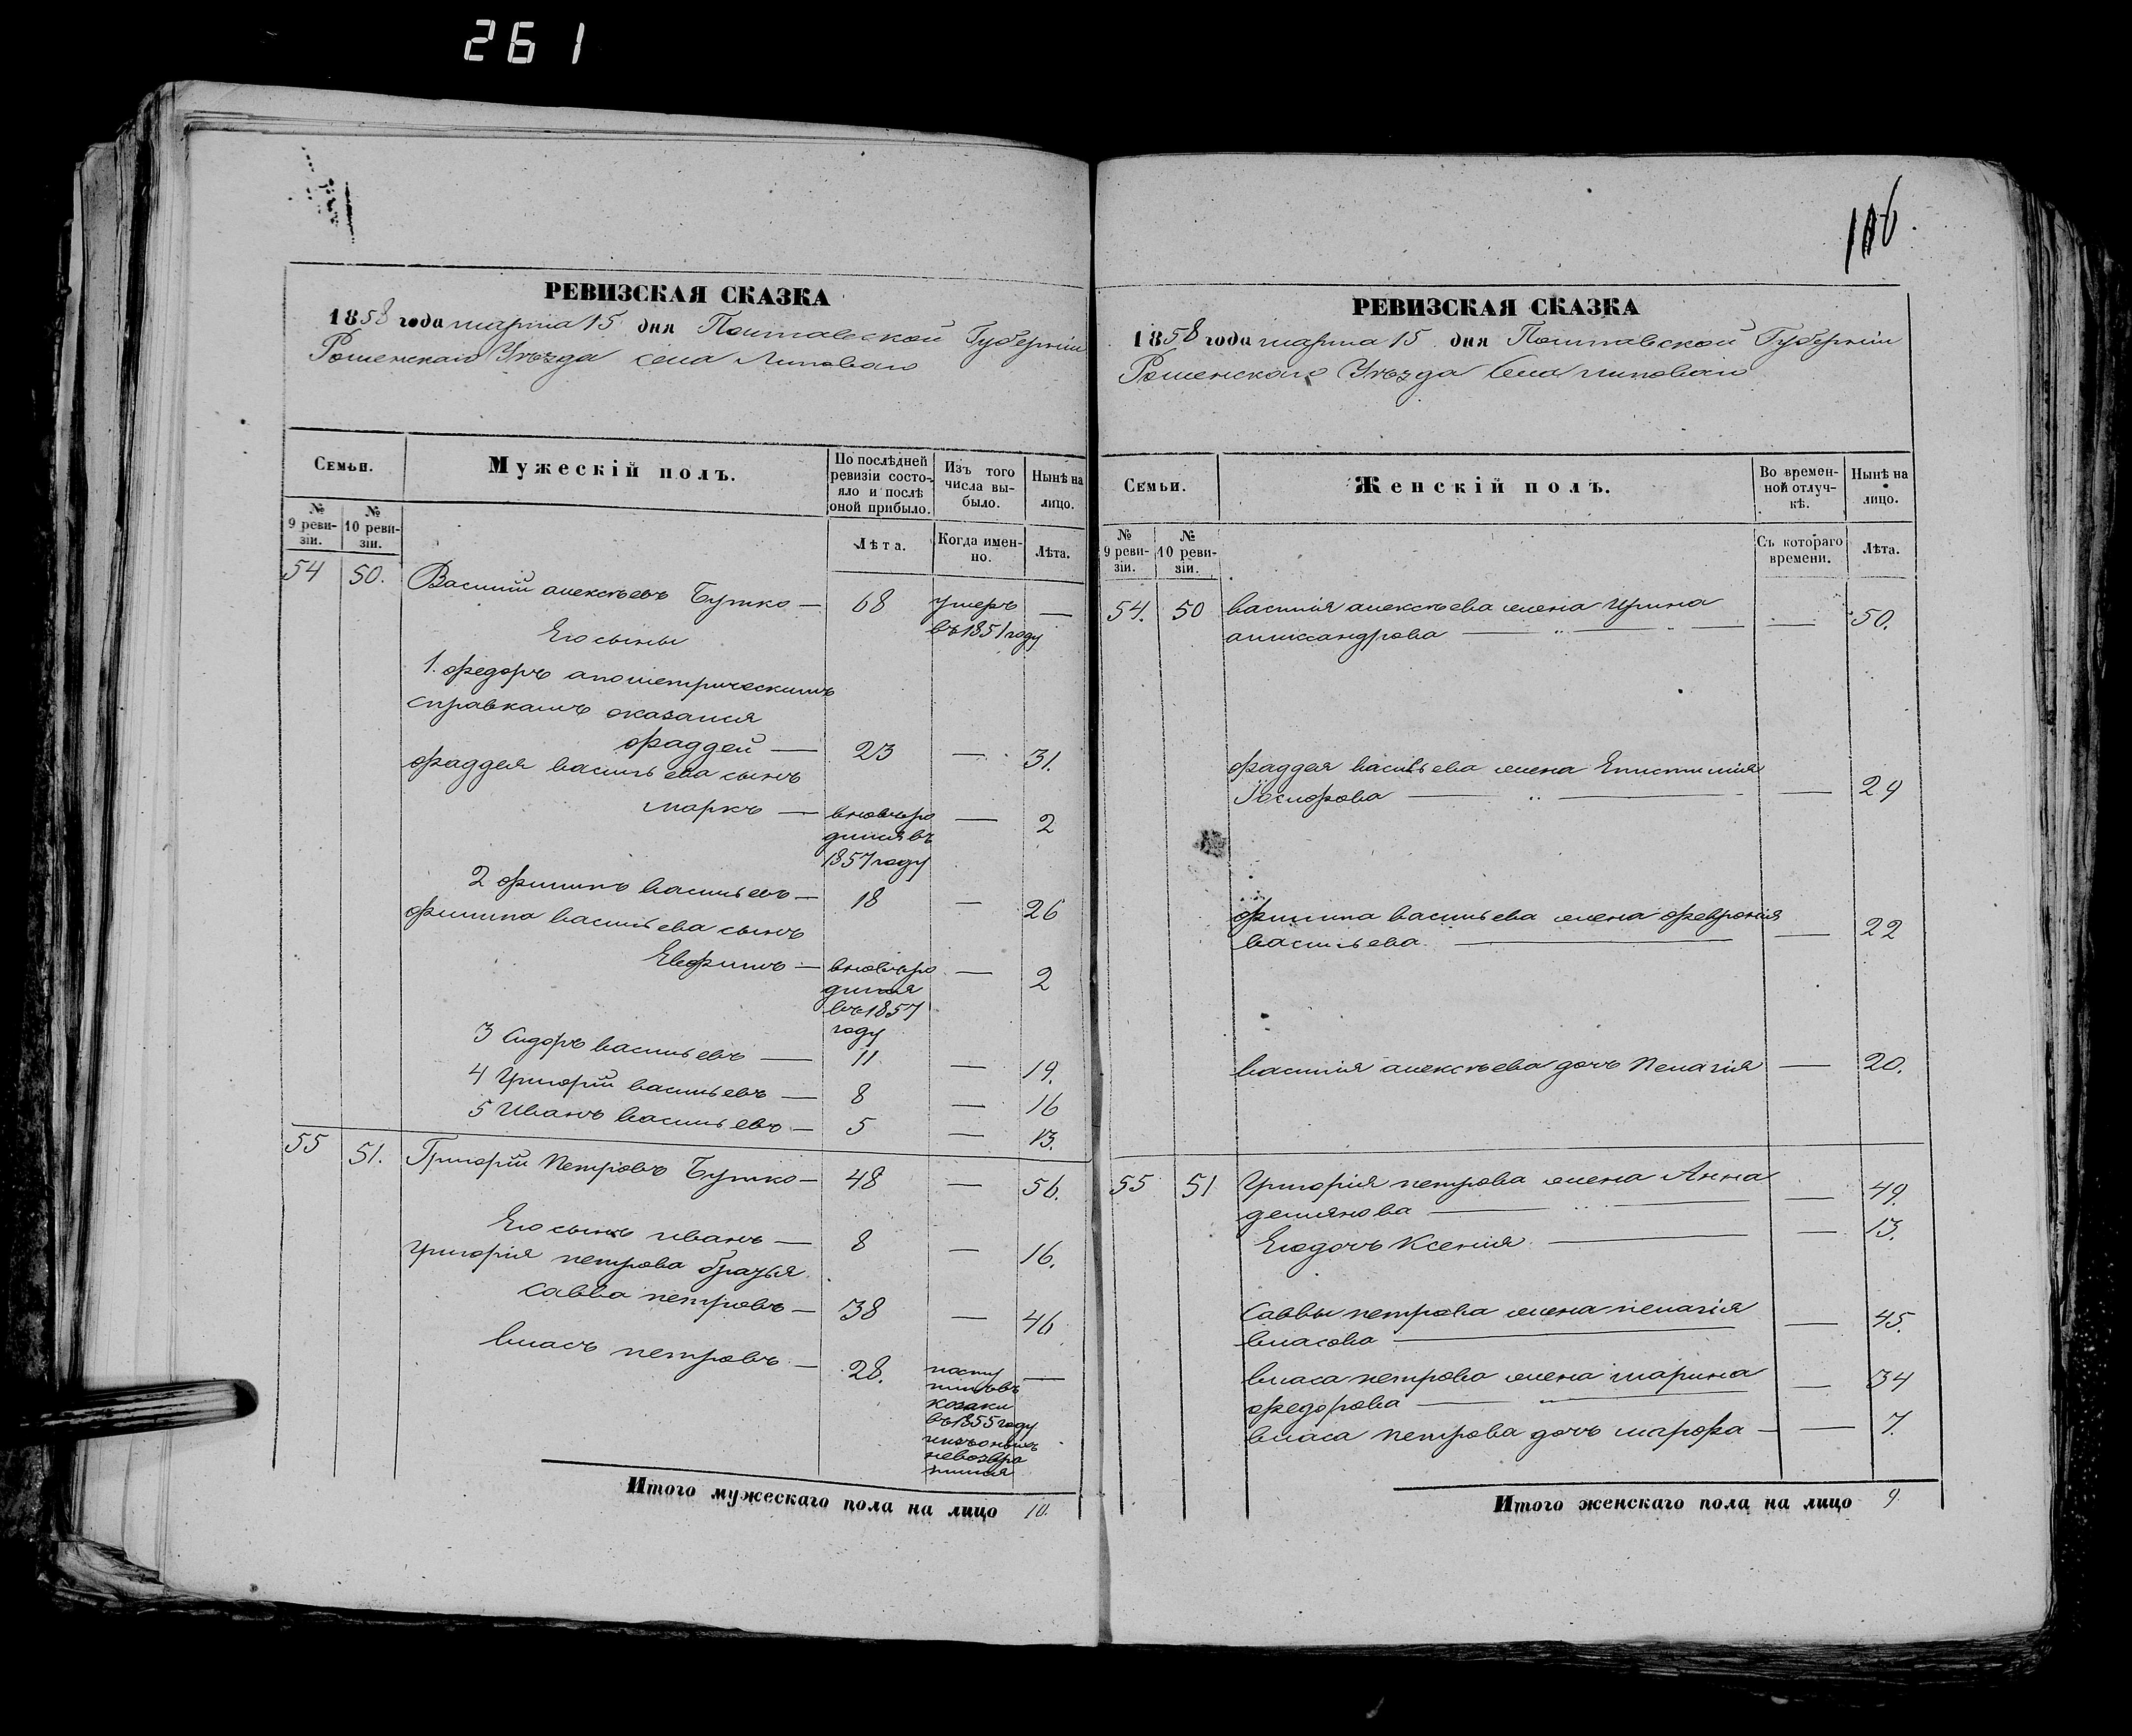 261
РЕВИЗСКАЯ СКАЗКА
1858 года марта 15 дня Полтавской Губерніи
Роменскаго Уѣзда села Липоваго
Семьи.
Мужескій полъ.
По послѣдней ревизіи состояло и послѣ оной прибыло.
Изъ того числа выбыло.
Нынѣ на лицо.
№ 9 ревизіи.
№ 10 ревизіи.
Лѣта.
Когда именно.
Лѣта.
54 50. Василій алексѣевъ Бутко — 68 умеръ въ 1851 году —
Его сыны
1. федоръ апометрическимъ
справкамъ оказался
фаддей — 23 — 31.
фаддея васильева сынъ
маркъ — вновь родился въ 1857 году — 2
2 филипъ васильевъ — 18 — 26
филипа васильева сынъ
Евфимъ — вновь родился въ 1857 году — 2
3 Сидоръ васильевъ — 11 — 19.
4 Григорій васильевъ — 8 — 16
5 Иванъ васильевъ — 5 — 13.
55 51. Григорій Петровъ Бутко — 48 — 56.
Его сынъ иванъ — 8 — 16.
Григорія петрова братья
Савва петровъ — 38 — 46
власъ петровъ — 28. поступилъ въ козаки въ 1855 году —
Итого мужескаго пола на лицо 10.
116.
РЕВИЗСКАЯ СКАЗКА
1858 года марта 15 дня Полтавской Губерніи
Роменскаго Уѣзда села липоваго
Семьи.
Женскій полъ.
Во временной отлучкѣ.
Нынѣ на лицо.
№ 9 ревизіи.
№ 10 ревизіи.
Съ котораго времени.
Лѣта.
54. 50 василія алексѣева жена Ирина
аликсандрова — — 50.
фаддея васильева жена Епистимія
Іосифова — — 29
филипа васильева жена феврония
васильева — — 22
василія алексѣева дочь Пелагія — 20.
55 51 Григорія петрова жена Анна
демянова — — 49.
Его дочь Ксенія — — 13.
Саввы петрова жена пелагія
власова — — 45.
власа петрова жена марина
федорова — — 34
власа петрова дочь марфа — — 7.
Итого женскаго пола на лицо 9.